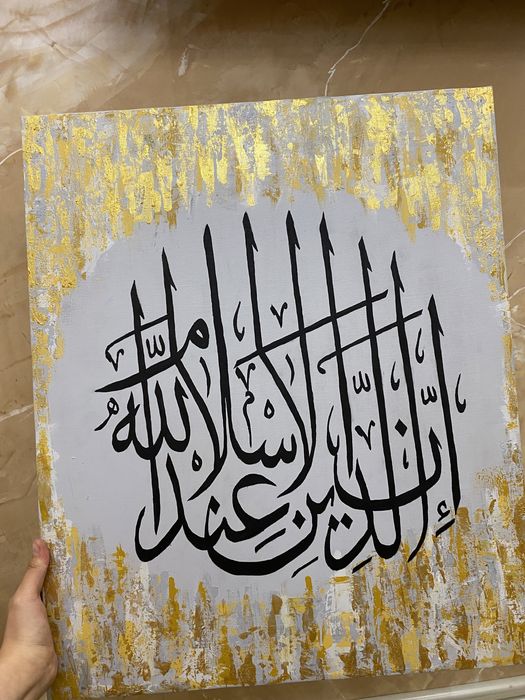 إِنَّ الدِّينَ عِندَ اللّٰهِ الإِسلَامُ